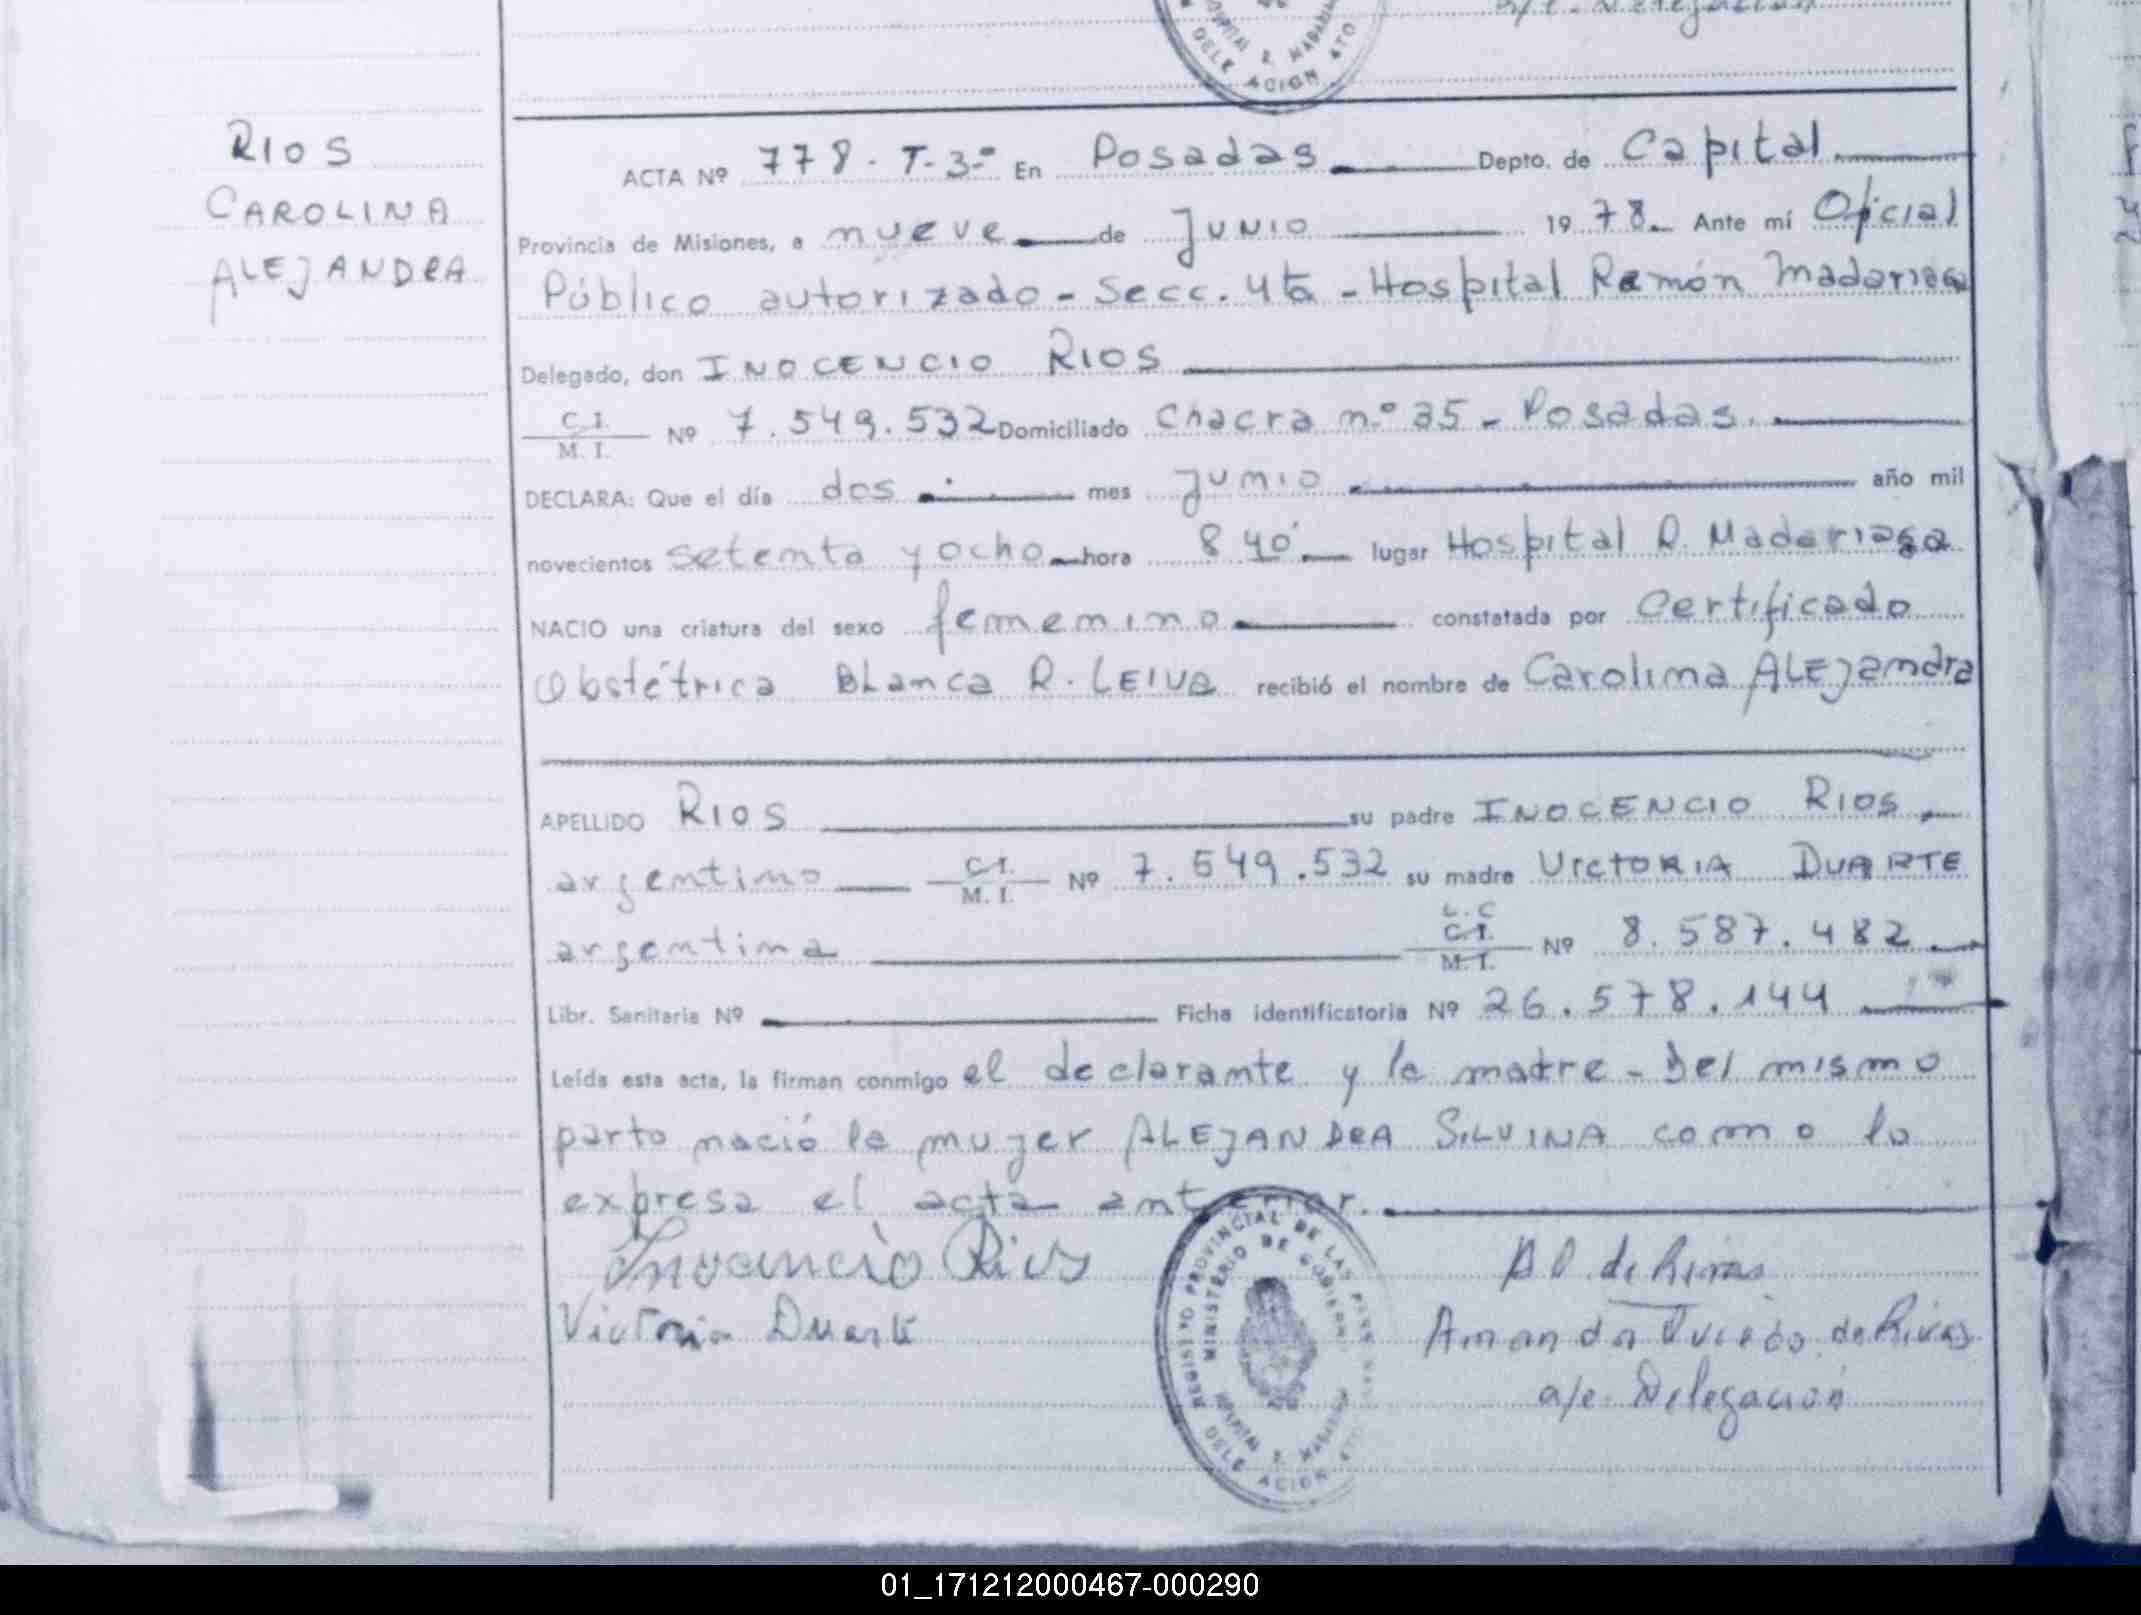 a/e. Delegación
HOSPITAL R. MADARIAGA
DELEGACION 4TO
RIOS
CAROLINA
ALEJANDRA
ACTA Nº 778 - T-3-º En Posadas Depto. de Capital
Provincia de Misiones, a nueve de Junio 1978. Ante mí Oficial
Público autorizado - Secc. 4ta - Hospital Ramón Madariaga
Delegado, don INOCENCIO RIOS
C.I.
M. I. Nº 7.549.532 Domiciliado Chacra n.º 35 - Posadas.
DECLARA: Que el día dos mes Junio año mil
novecientos setenta y ocho hora 8 40' lugar Hospital R. Madariaga
NACIO una criatura del sexo femenino constatada por Certificado
Obstétrica Blanca R. LEIVA recibió el nombre de Carolina ALEJandra
APELLIDO RIOS su padre INOCENCIO RIOS
argentino C.I. M. I. Nº 7.549.532 su madre VICTORIA DUARTE
argentina L.C C.I. M.I. Nº 8.587.482
Libr. Sanitaria Nº Ficha identificatoria Nº 26.578.144
Leída esta acta, la firman conmigo el declarante y la madre - Del mismo
parto nació la mujer ALEJANDRA SILVINA como lo
expresa el acta anterior.
Inocencio Rios
Victoria Duarte
REGISTRO PROVINCIAL DE LAS PERSONAS
MINISTERIO DE GOBIERNO
HOSPITAL R. MADARIAGA
DELEGACION 4TO
A O de Rivas
Amanda Oviedo de Rivas
a/e. Delegación
01_171212000467-000290